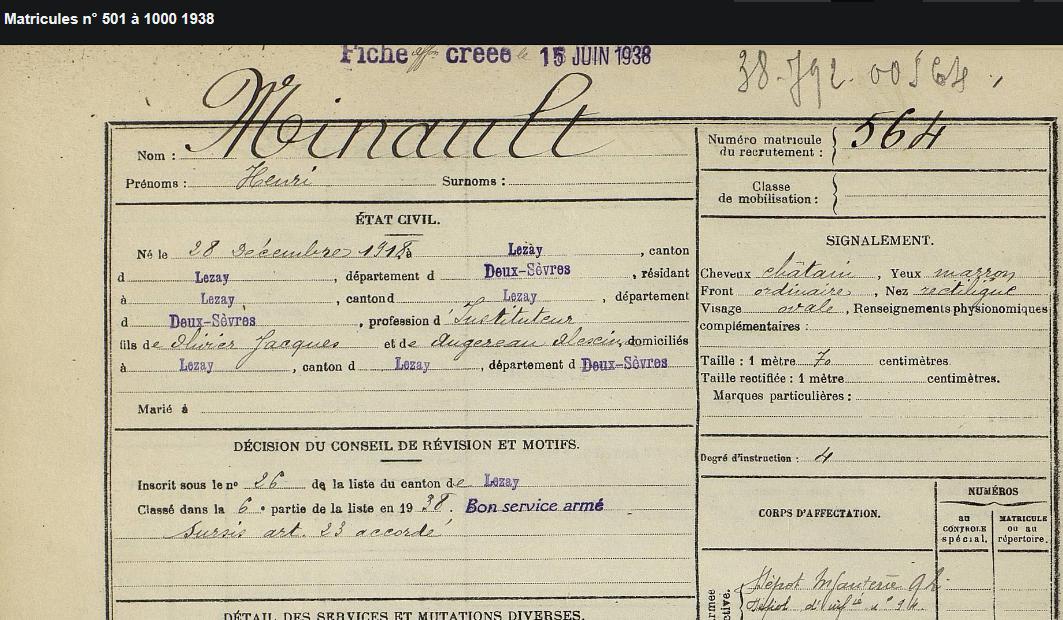 Matricules n° 501 à 1000 1938
Fiche créée le 15 JUIN 1938
38.792.00564.
Minault
Nom :
Prénoms : Henri Surnoms :
Numéro matricule du recrutement : 564
Classe de mobilisation :
ÉTAT CIVIL.
Né le 28 Décembre 1918 à Lezay, canton
d Lezay, département d Deux-Sèvres, résidant
à Lezay, canton d Lezay, département
d Deux-Sèvres, profession d' Instituteur
fils de Olivier Jacques et de Augereau domiciliés
à Lezay, canton d Lezay, département d Deux-Sèvres
Marié à
DÉCISION DU CONSEIL DE RÉVISION ET MOTIFS.
Inscrit sous le n° 26 de la liste du canton de Lezay
Classé dans la 6e partie de la liste en 1938. Bon service armé
Sursis art. 23 accordé
DÉTAIL DES SERVICES ET MUTATIONS DIVERSES.
SIGNALEMENT.
Cheveux châtain, Yeux marron
Front ordinaire, Nez rectiligne
Visage ovale, Renseignements physionomiques
complémentaires :
Taille : 1 mètre 70 centimètres
Taille rectifiée : 1 mètre centimètres.
Marques particulières :
Degré d'instruction : 4
CORPS D'AFFECTATION.
NUMÉROS
AU CONTROLE spécial.
MATRICULE ou au répertoire.
Dépôt Infanterie 92
Dépôt d'infie n° 94